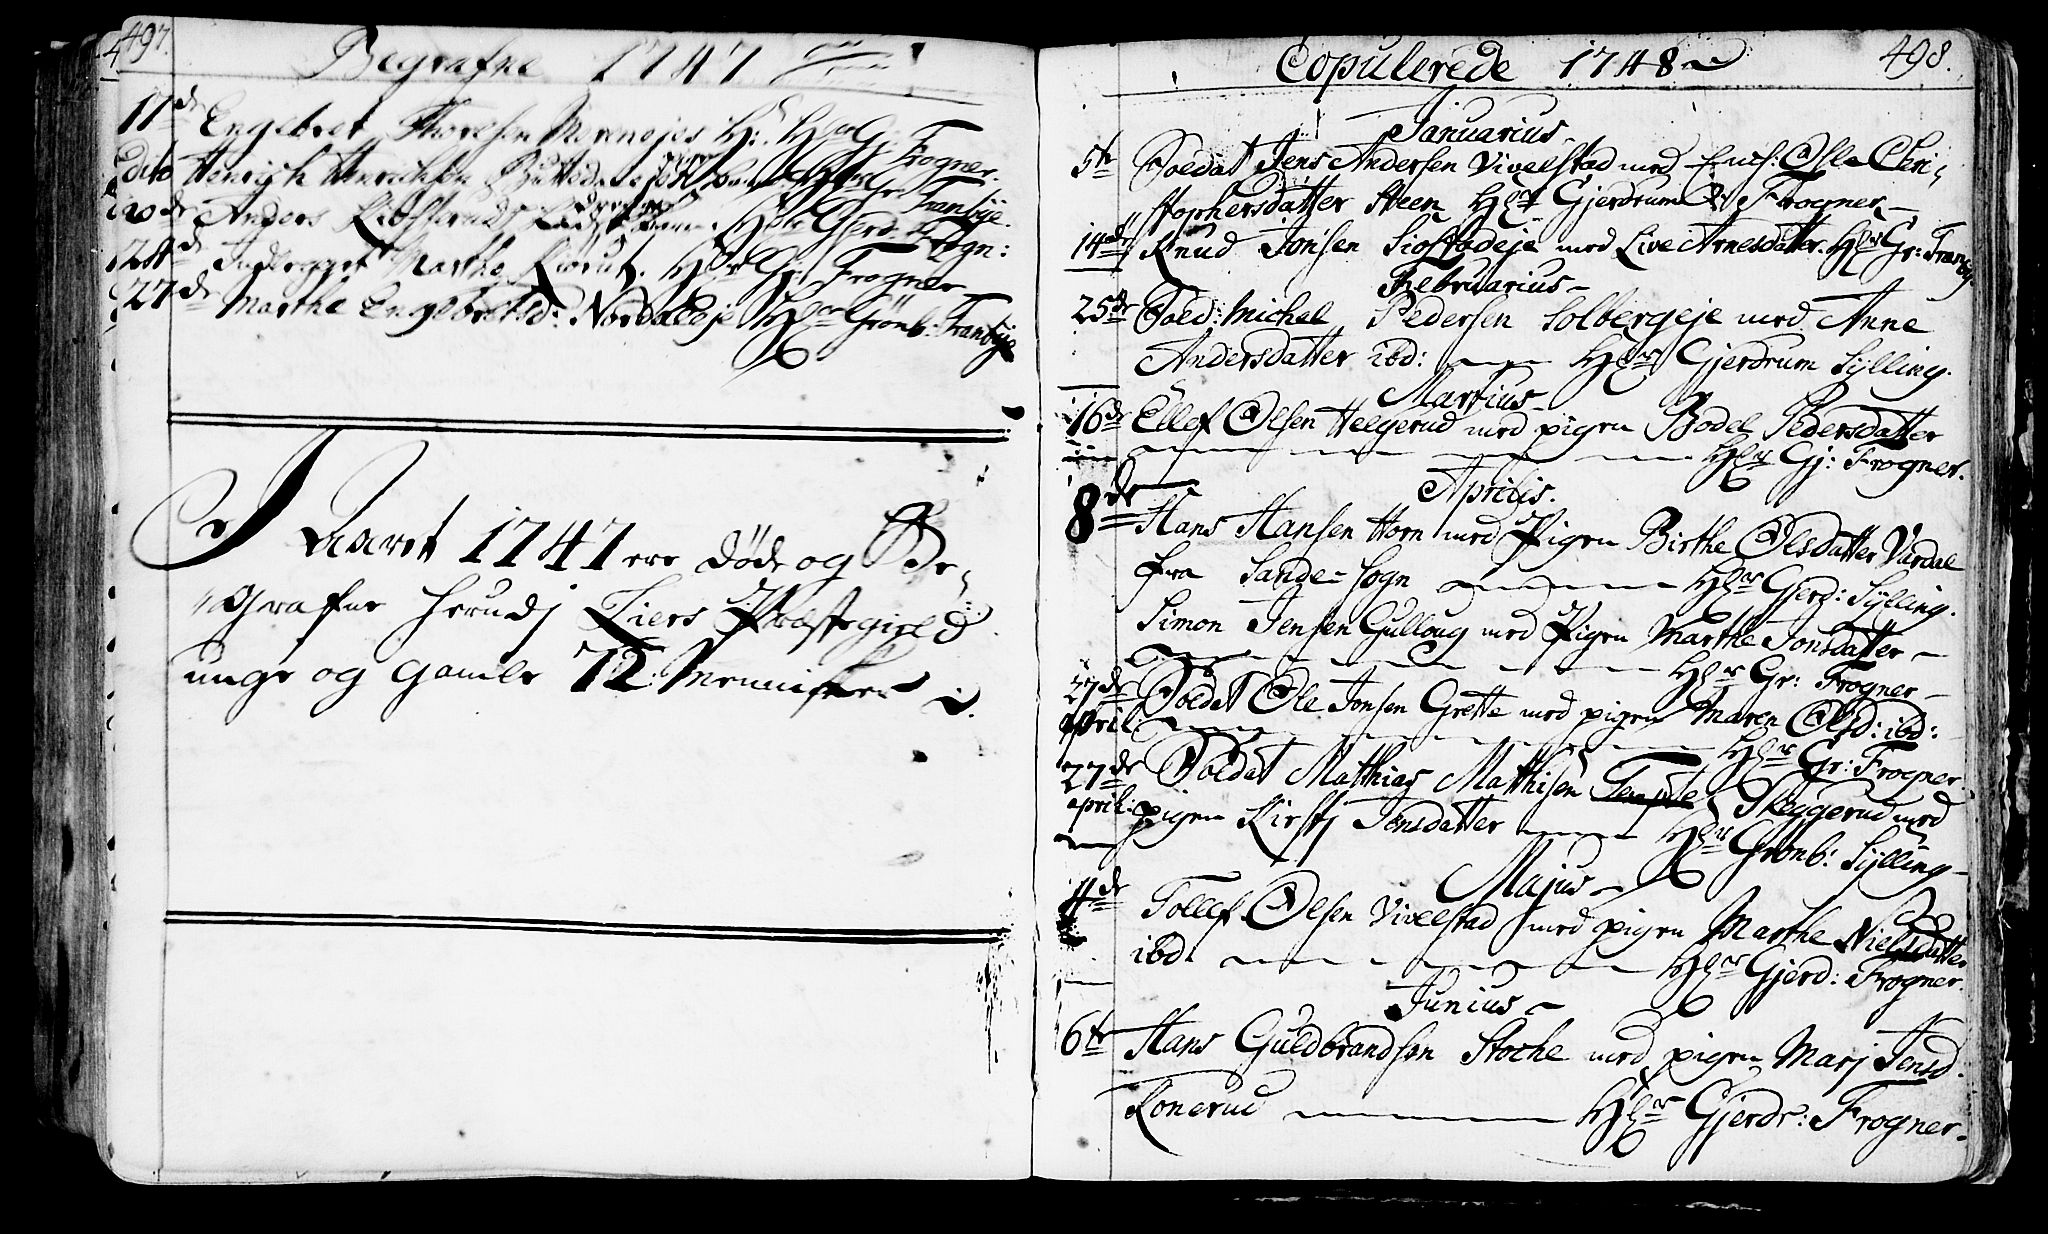 497.
Begrafne 1747
17de Engebret Thoresen Morenejes H: Hr Gr: Frogner.
dito Henrich Henrichsen
20de Anders Gjerd: Frogn:
24d Inderqvet Marthe Hr Gr: Frogner
27de Marthe Engebretsd: Nordaleje Hr Grönb: Tranbye
I Aaret 1747 ere döde og Be-
grafne herudj Liers Præstegield
unge og gamle 72: Mennisker
498.
Copulerede 1748
Januarius
5te Soldat Jens Andersen Vivelstad med Encf: Olle Chri-
stophersdatter Steen Hr Gjerdrum Frogner
14de Knud Jonsen med Live Arnesdatter. Hr Gr: Tranby
Februarius
25de Sold: Michel Pedersen Solbergeje med Anne
Andersdatter ibd: Hr Gjerdrum Sylling.
Martius
16de Ellef Olsen Helgerud med pigen Bodel Pedersdatter
Hr Gj: Frogner.
Aprilis.
8de Hans Hansen Horn med Pigen Birthe Olsdatter Vardal
fra Sande-Sogn Hr Gjerd: Sylling.
Simon Jensen Gulloug med Pigen Marthe Jonsdatter
Hr Gr: Frogner
27de Soldat Ole Jonsen Grette med pigen Maren Olsd: ibd:
april Hr Gr: Frogner
27de Soldat Matthias Matthisen Skeggerud med
april: pigen Kirstj Jensdatter Hr Grönb: Sylling
Majus
4de Tollef Olsen Vivelstad med pigen Marthe Nielsdatter
ibd. Hr Gjerd: Frogner.
Junius
6te Hans Guldbrandsøn Stoche med pigen Marj Jensd.
Konerud Hr Gjerdr: Frogner.